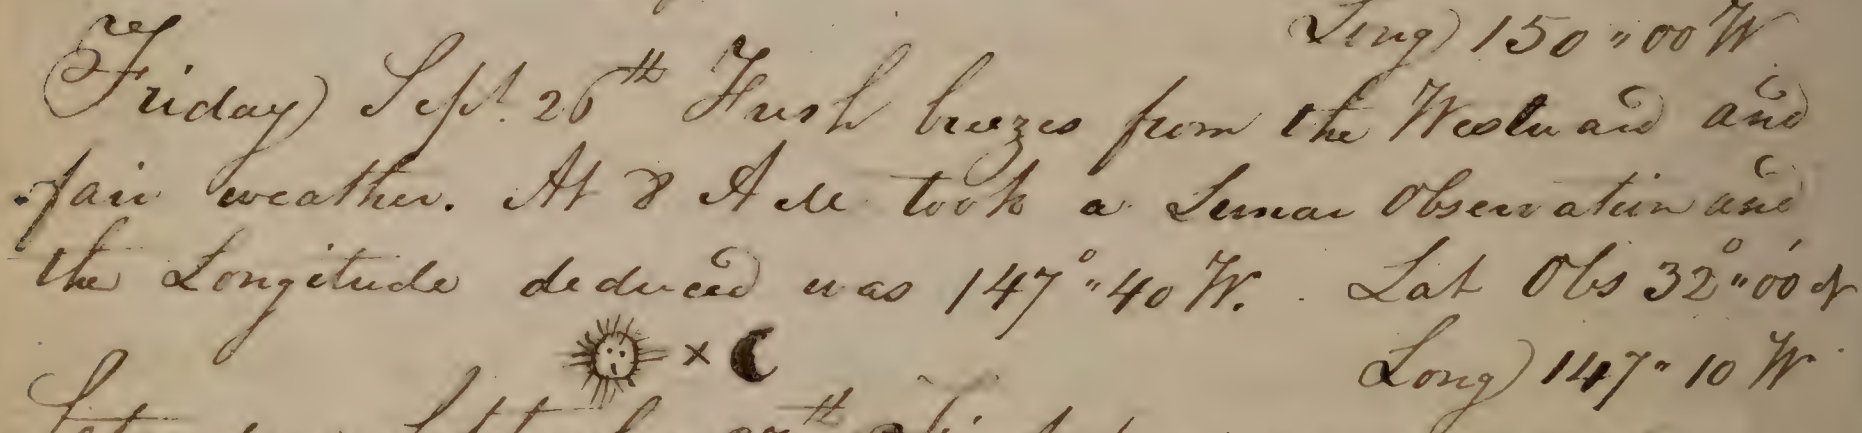 Long) 150 " 00 W
Friday) Sept. 26th Fresh breezes from the Westward and
fair weather. At 8 AM took a Lunar Observation and
the Longitude deduced was 147° " 40 W. Lat Obs 32° " 00' N
Long) 147 " 10 W
27th